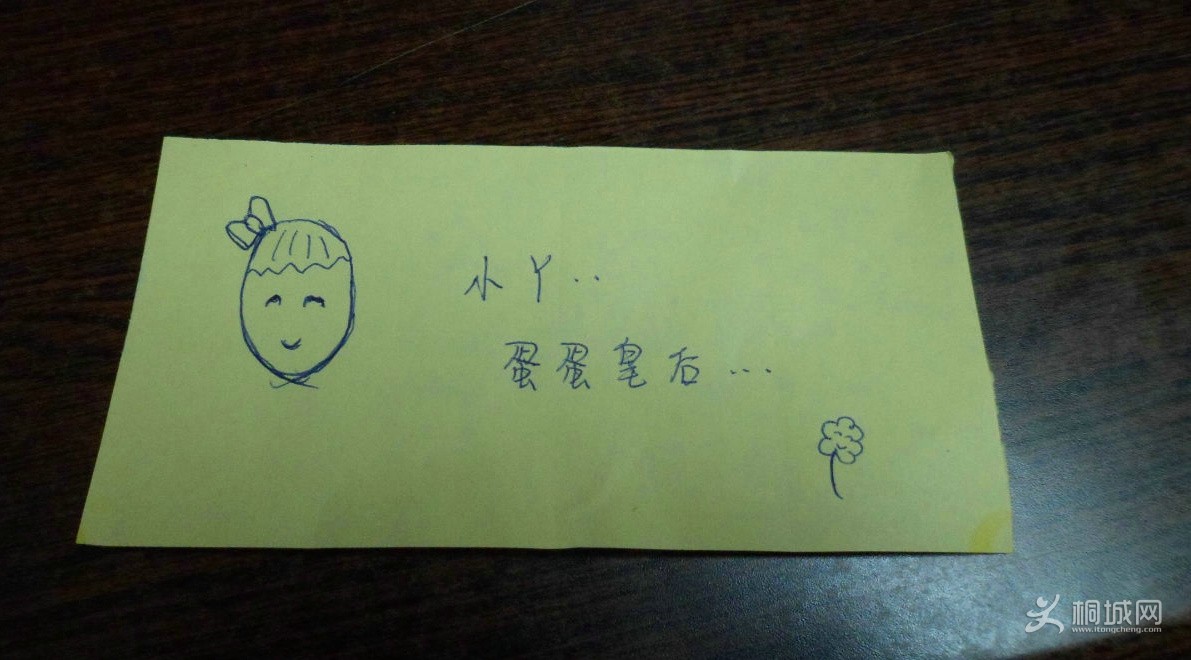 小丫..
蛋蛋皇后...
桐城网
www.itongcheng.com